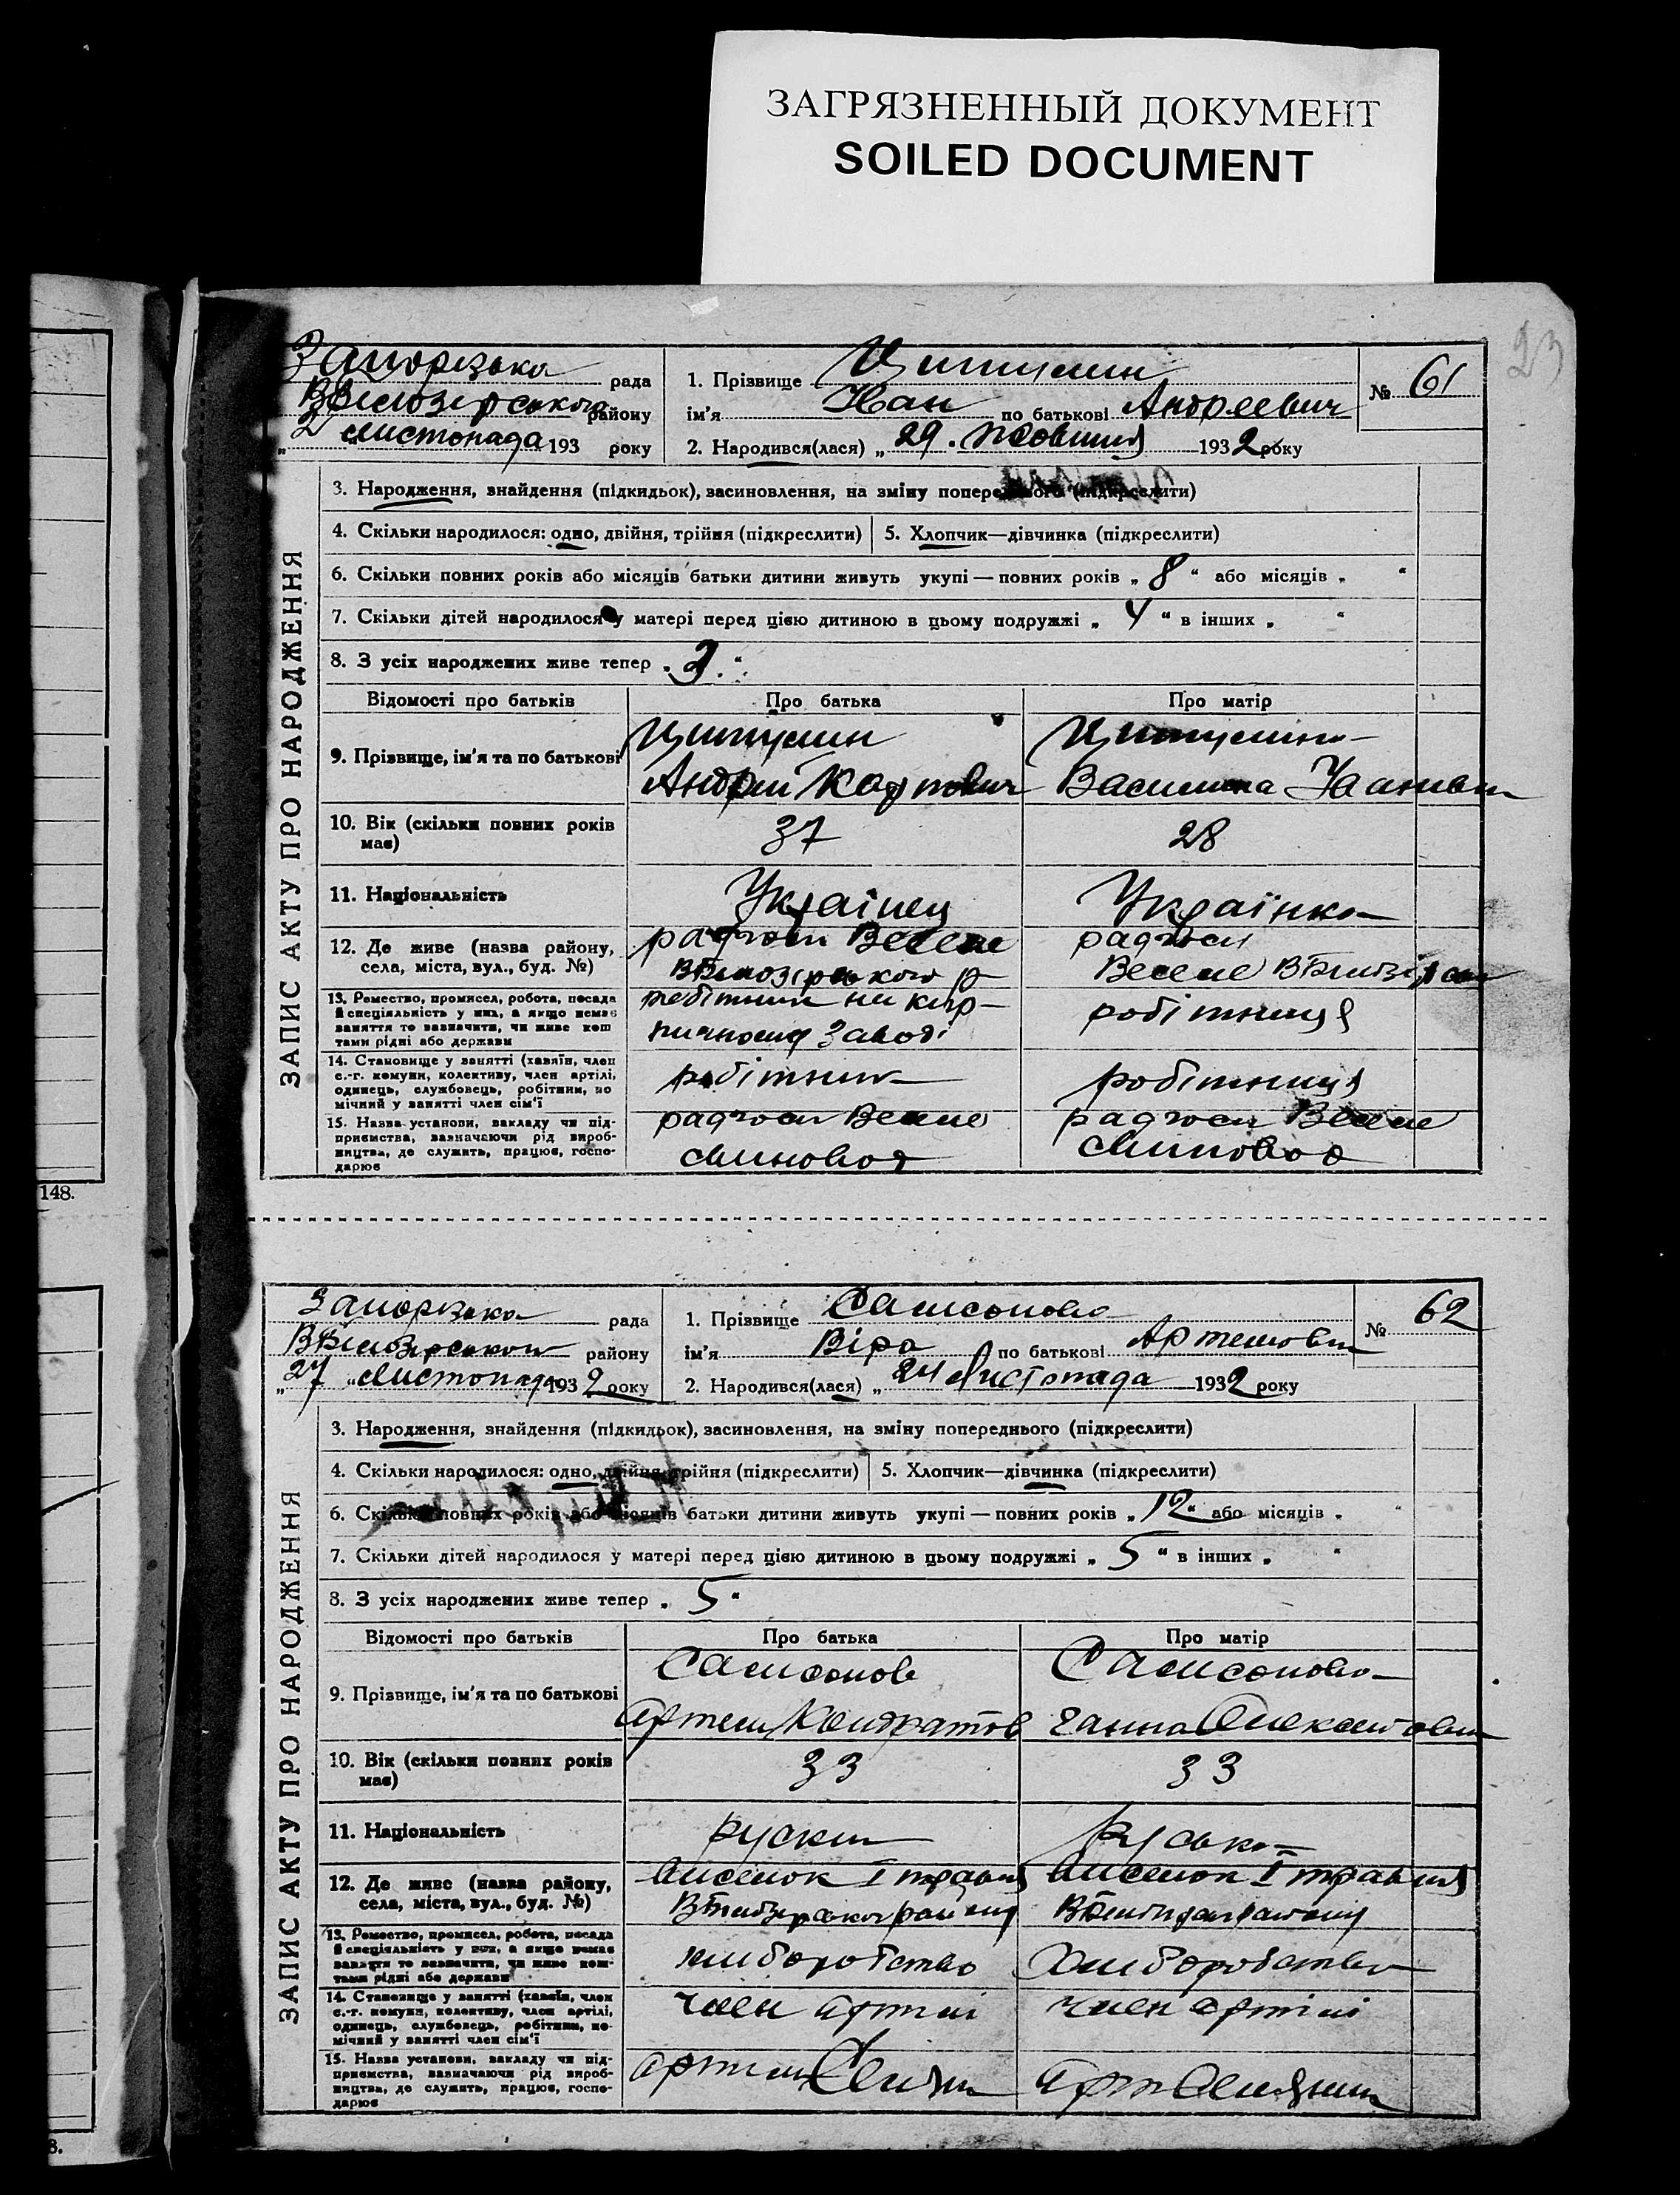 ЗАГРЯЗНЕННЫЙ ДОКУМЕНТ
SOILED DOCUMENT
23
ЗАПИС АКТУ ПРО НАРОДЖЕННЯ
Запорізька рада
району
2 Листопада 193 року
1. Прізвище
ім'я Іван по батькові Андреевич
№ 61
2. Народився(лася) „ 29. жовтня 1932 року
3. Народження, знайдення (підкидьок), засиновлення, на зміну попереднього (підкреслити)
4. Скільки народилося: одно, двійня, трійня (підкреслити) 5. Хлопчик—дівчинка (підкреслити)
6. Скільки повних років або місяців батьки дитини живуть укупі — повних років „ 8 “ або місяців „ “
7. Скільки дітей народилося у матері перед цією дитиною в цьому подружжі „ 4 “ в інших „ “
8. З усіх народжених живе тепер „ 3 “
Відомості про батьків Про батька Про матір
9. Прізвище, ім'я та по батькові
Андрий Карпович Василина
10. Вік (скільки повних років має) 37 28
11. Національність Українец Українка
12. Де живе (назва району, села, міста, вул., буд. №)
радгосп Веселе радгосп
Веселе
13. Ремество, промисел, робота, посада й спеціяльність у них, а якщо немає заняття то зазначити, чи живе кош тами рідні або держави
робітник на кир-
пичному заводі робітниця
14. Становище у занятті (хазяїн, член с.-г. комуни, колективу, член артілі, одинець, службовець, робітник, по мічний у занятті член сім'ї
робітник робітниця
15. Назва установи, закладу чи підприємства, зазначаючи рід виробництва, де служить, працює, господарює
радгосп Веселе радгосп Веселе
148.
ЗАПИС АКТУ ПРО НАРОДЖЕННЯ
Запорізька рада
району
27 Листопада 1932 року
1. Прізвище Самсонова
ім'я Віра по батькові Артемовн
№ 62
2. Народився(лася) „ 24 Листопада 1932 року
3. Народження, знайдення (підкидьок), засиновлення, на зміну попереднього (підкреслити)
4. Скільки народилося: одно, двійня, трійня (підкреслити) 5. Хлопчик—дівчинка (підкреслити)
6. Скільки повних років або місяців батьки дитини живуть укупі — повних років „ 12 “ або місяців „ “
7. Скільки дітей народилося у матері перед цією дитиною в цьому подружжі „ 5 “ в інших „ “
8. З усіх народжених живе тепер „ 5 “
Відомості про батьків Про батька Про матір
9. Прізвище, ім'я та по батькові
Самсонов Самсонова
Артем Кондратов Ганна
10. Вік (скільки повних років має) 33 33
11. Національність руский руська
12. Де живе (назва району, села, міста, вул., буд. №)
виселок І травня виселок І травня
13. Ремество, промисел, робота, посада й спеціяльність у них, а якщо немає заняття то зазначити, чи живе кош-тами рідні або держави
хлиборобство хлиборобство
14. Становище у занятті (хазяїн, член с.-г. комуни, колективу, член артілі, одинець, службовець, робітник, по-мічний у занятті член сім'ї
член артілі член артілі
15. Назва установи, закладу чи підприємства, зазначаючи рід виробництва, де служить, працює, господарює
8.